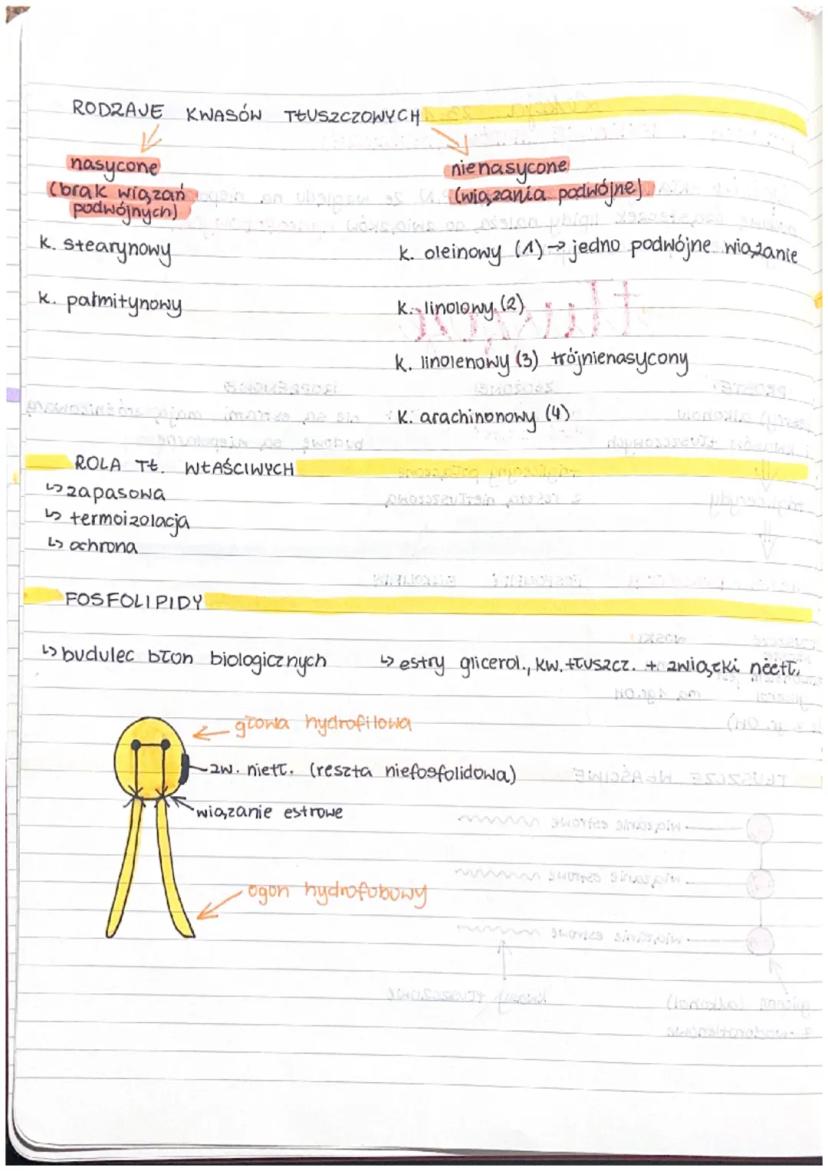 RODZAJE KWASÓW TŁUSZCZOWYCH
nasycone
(brak wiązań
podwójnych)
k. stearynowy
k. palmitynowy
nienasycone
(wiązania podwójne)
k. oleinowy (1) → jedno podwójne wiązanie
k. linolowy (2)
k. linolenowy (3) trójnienasycony
k. arachinonowy (4)
ROLA TŁ. WŁAŚCIWYCH
↳ zapasowa
↳ termoizolacja
↳ ochrona
FOSFOLIPIDY
↳ budulec błon biologicznych
↳ estry glicerol., kw. tłuszcz. + związki
głowa hydrofilowa
zw. nietł. (reszta niefosfolidowa)
wiązanie estrowe
ogon hydrofobowy